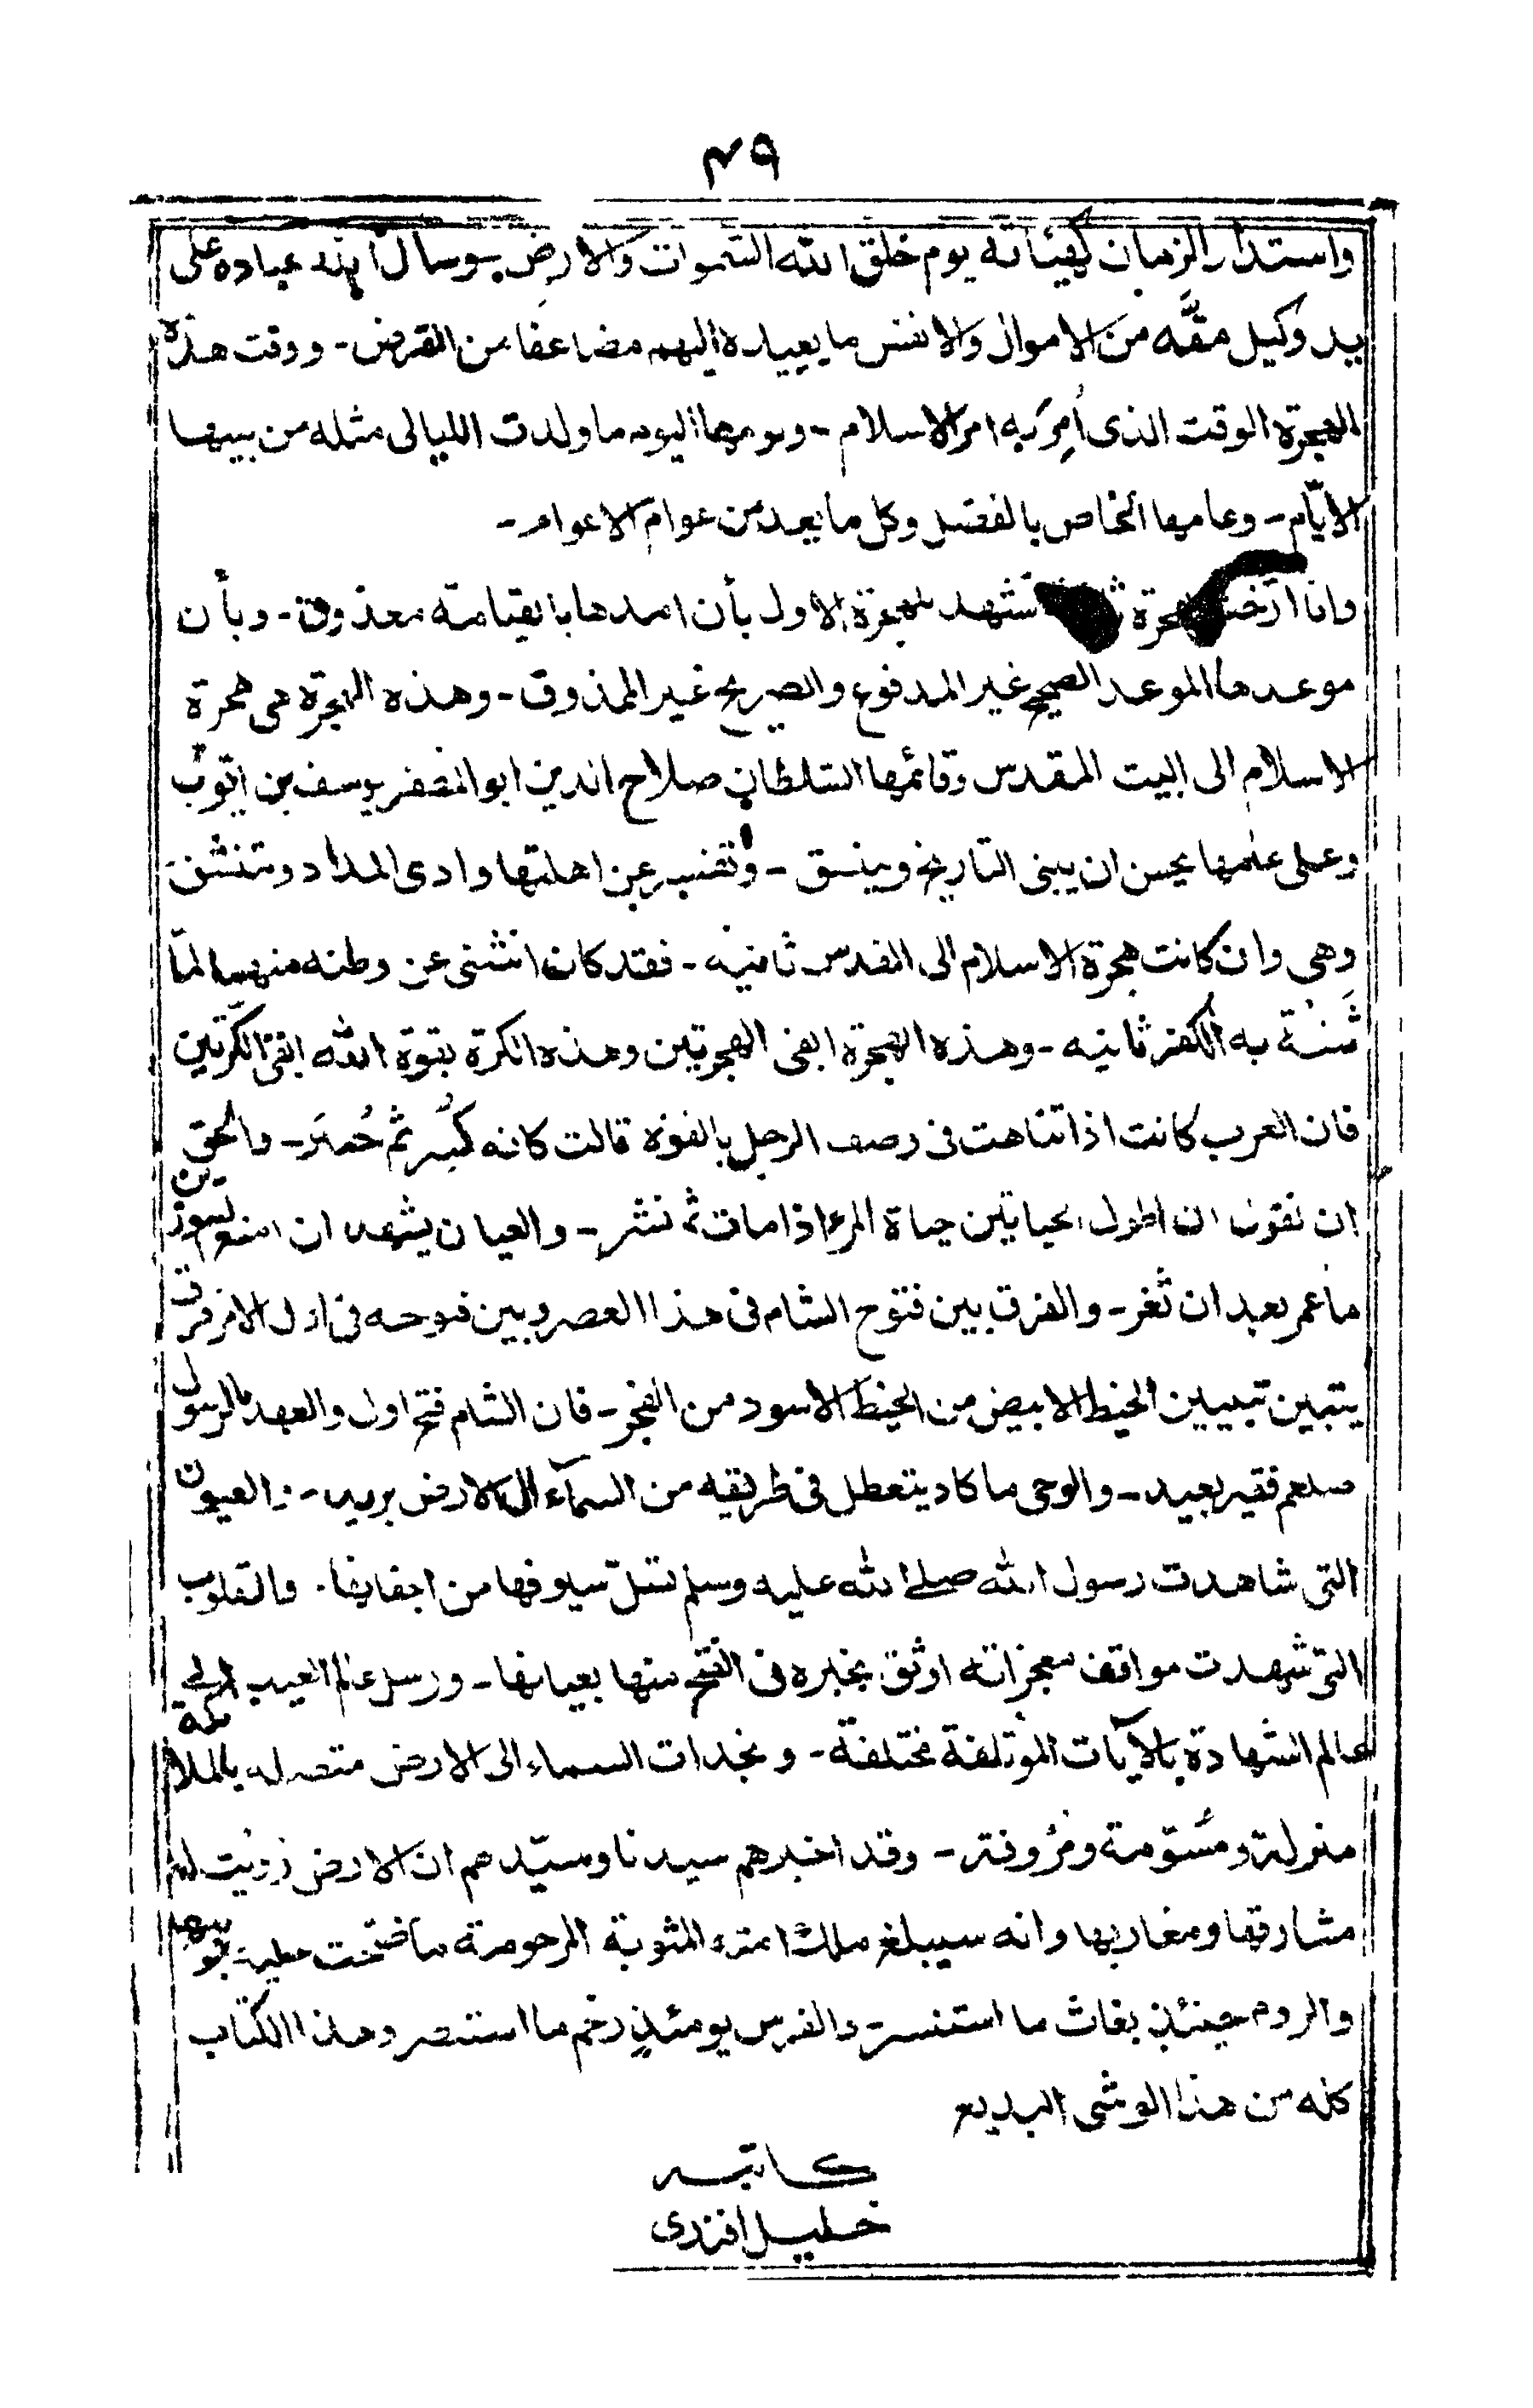 ٤٩
واستدار الزمان كهيئاته يوم خلق الله السموات والارض وسال الله عباده على
يد وكيل مقه من الاموال والانفس ما يعيده اليهم مضاعفا من القرض - ووقت هذه
الهجرة الوقت الذى أمِرَ به امر الاسلام - ويومها اليوم ما ولدت الليالى مثله من بينها
الايّام - وعامها الخاص بالفضل وكل ما يعد من عوام الاعوام -
وانا ارّخت بهجرة تشهد للهجرة الاول بأن امدها بالقيامة معذوق - وبأن
موعدها الموعد الصحيح غير المدفوع والصريح غير الممذوق - وهذه الهجرة هى هجرة
الاسلام الى البيت المقدس وقائمها السلطان صلاح الدين ابو المضفر يوسف بن ايّوب
وعلى عامها يحسن ان يبنى التاريخ وينسق - وتفسر عن اهلتها وادى المداد وتنشق
وهى وان كانت هجرة الاسلام الى القدس ثانيه - فقد كان انثنى عن وطنه منها لمّا
ثَنَتة به الكفر ثانيه - وهذه الهجرة ابقى الهجرتين وهذه الكرة بقوة الله ابقى الكرّتين
فان العرب كانت اذا تناهت فى وصف الرجل بالقوة قالت كانه كُسِر ثم جُبِرَ - والحق
ان نقول ان اطول الحياتين حياة المرء اذا مات ثم نشر - والعيان يشهد ان امنع السورين
ما عمر بعد ان ثُغر - والفرق بين فتوح الشام فى هذا العصر وبين فتوحه فى اول الامر فرق
يتبين تبيين الخيط الابيض من الخيط الاسود من الفجر - فان الشام فتح اول والعهد بالرسول
صلعم فقير بعيد - والوحى ما كاد يتعطل فى طريقه من السمآء الى الارض بريد - والعيون
التى شاهدت رسول الله صلى الله عليه وسلم تسلّ سيوفها من اجفانها - والقلوب
التى شهدت مواقف معجزاته اوثق بخبره فى الفتح منها بعيانها - ورسل عالم الغيب الى
عالم الشهادة بالآيات المؤتلفة مختلفة - ونجدات السماء الى الارض متصله بالملائكة
منزلة ومسوّمة ومُردفة - وقد اخبرهم سيدنا وسيّدهم ان الارض زويت له
مشارقها ومغاربها وانه سيبلغ ملك امته المثوبة المرحومة ما ضمت عليه جوانبها
والروم حينئذٍ بغاث ما استنسر - والفرس يومئذٍ رخم ما استنصر وهذا الكتاب
كله من هذا الوشى البديع
كاتبه
خليل افندى